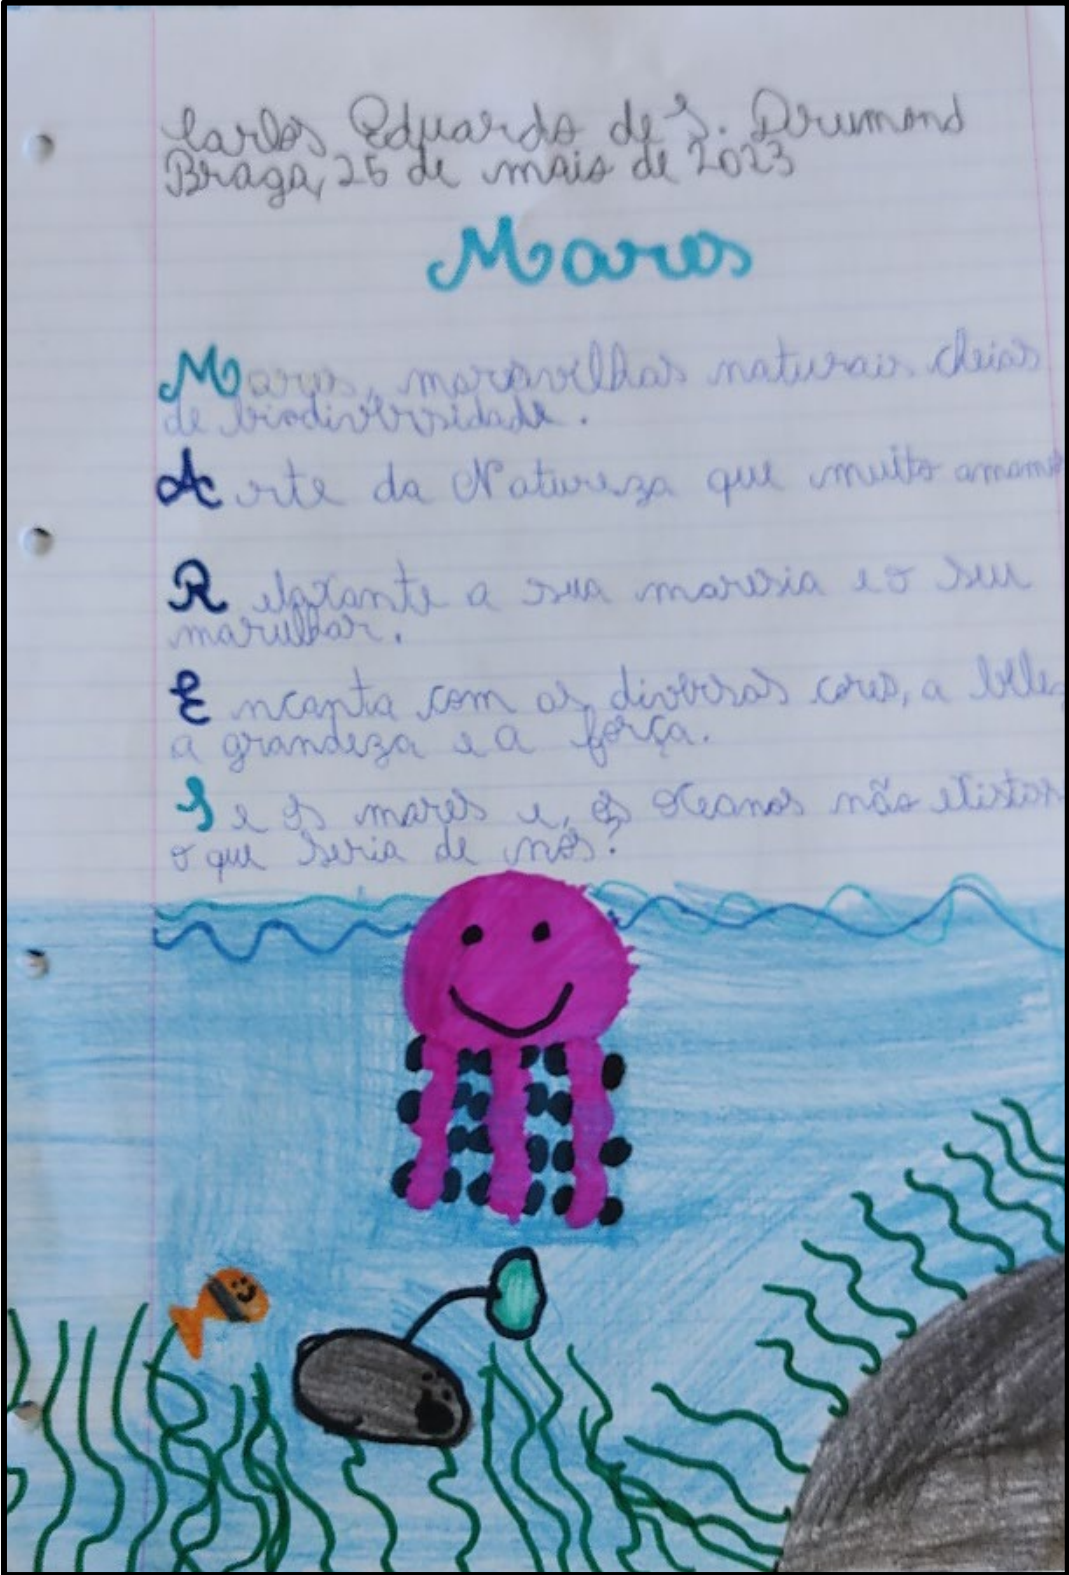 Carlos Eduardo de S. Drumond
Braga, 25 de maio de 2023
Mares
Mares, maravilhas naturais cheias
de biodiversidade.
Arte da Natureza que muito amam
Relaxante a sua maresia e o seu
marulhar.
Encanta com as diversas cores, a belez
a grandeza e a força.
Se os mares e, os oceanos não existis
o que seria de nós?